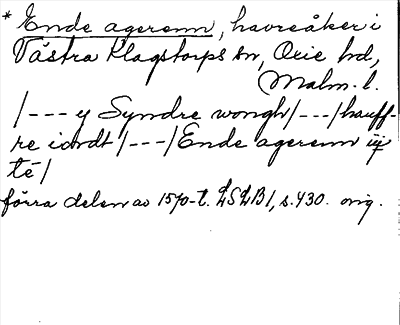 * Ende agerenn, havreåker i
Västra Klagstorps sn, Oxie hd,
Malm. l.
/--- y Syndre wongh/---/hauff-
re iordt/---/Ende agerenn
té/
förra delen av 1570-t. LSLB1, s. 430. orig.